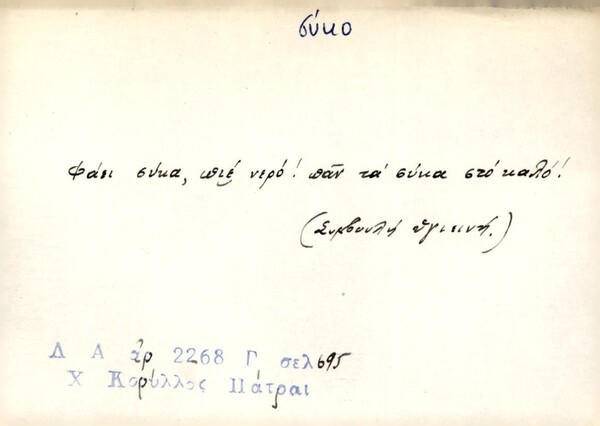 σύκο
Φάει σύκα, πιέ νερό! πᾶν τά σύκα στό καλό!
(Συμβουλή ὑγιεινή.)
Λ Α ἀρ 2268 Γ σελ 695
Χ Κορύλλος Πάτραι